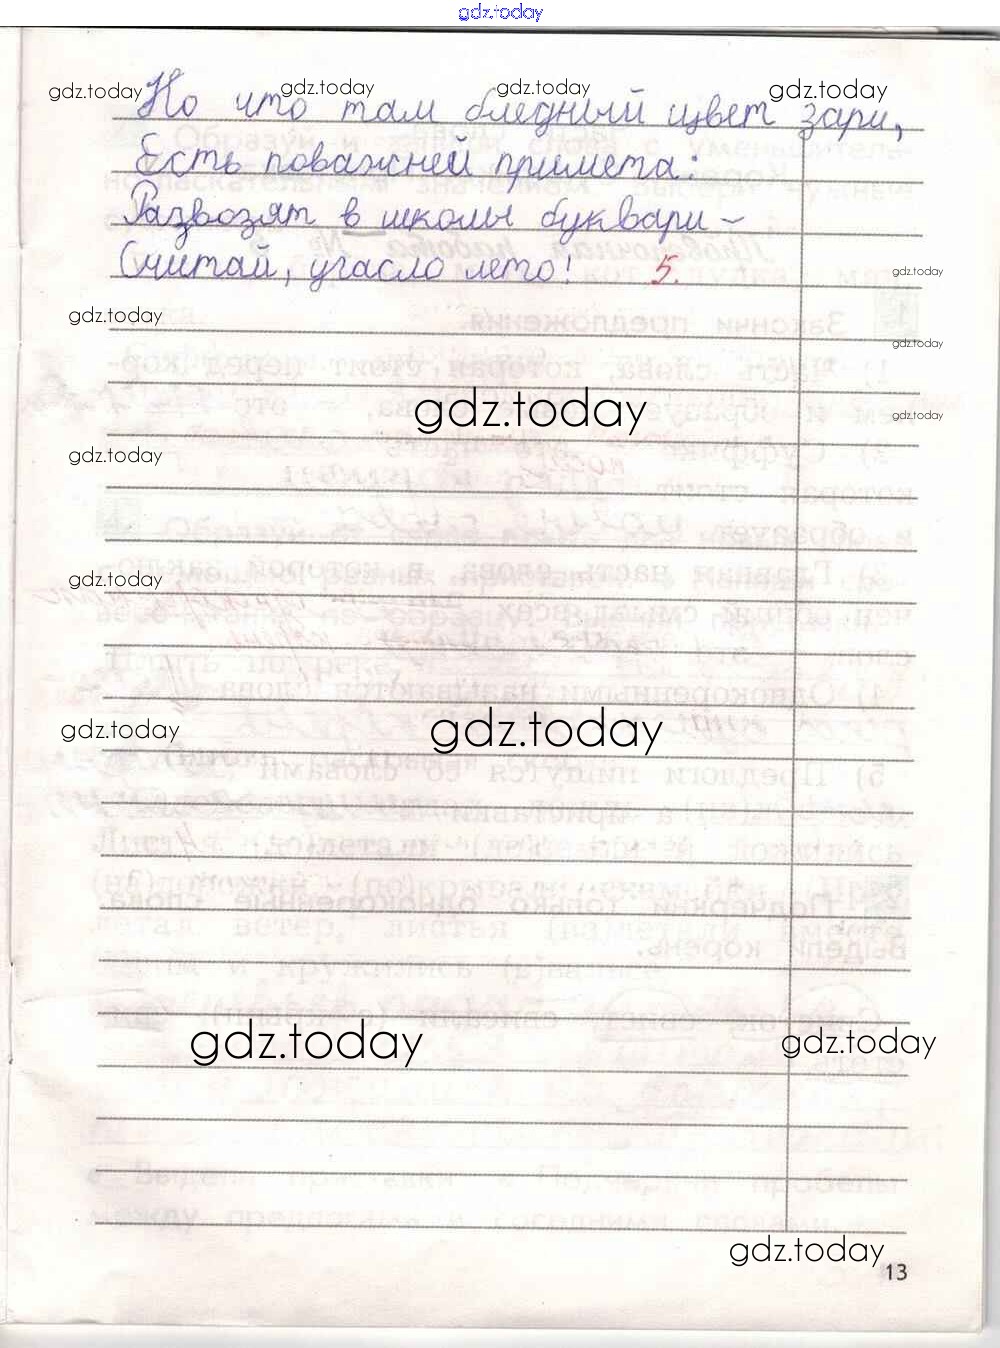 gdz.today
gdz.today gdz.today gdz.today gdz.today
Но что там бледный цвет зари,
Есть поважней примета:
Развозят в школы буквари –
Считай, угасло лето! 5.
gdz.today
gdz.today
gdz.today
gdz.today
gdz.today
gdz.today
gdz.today
gdz.today
gdz.today
gdz.today
gdz.today
gdz.today
13